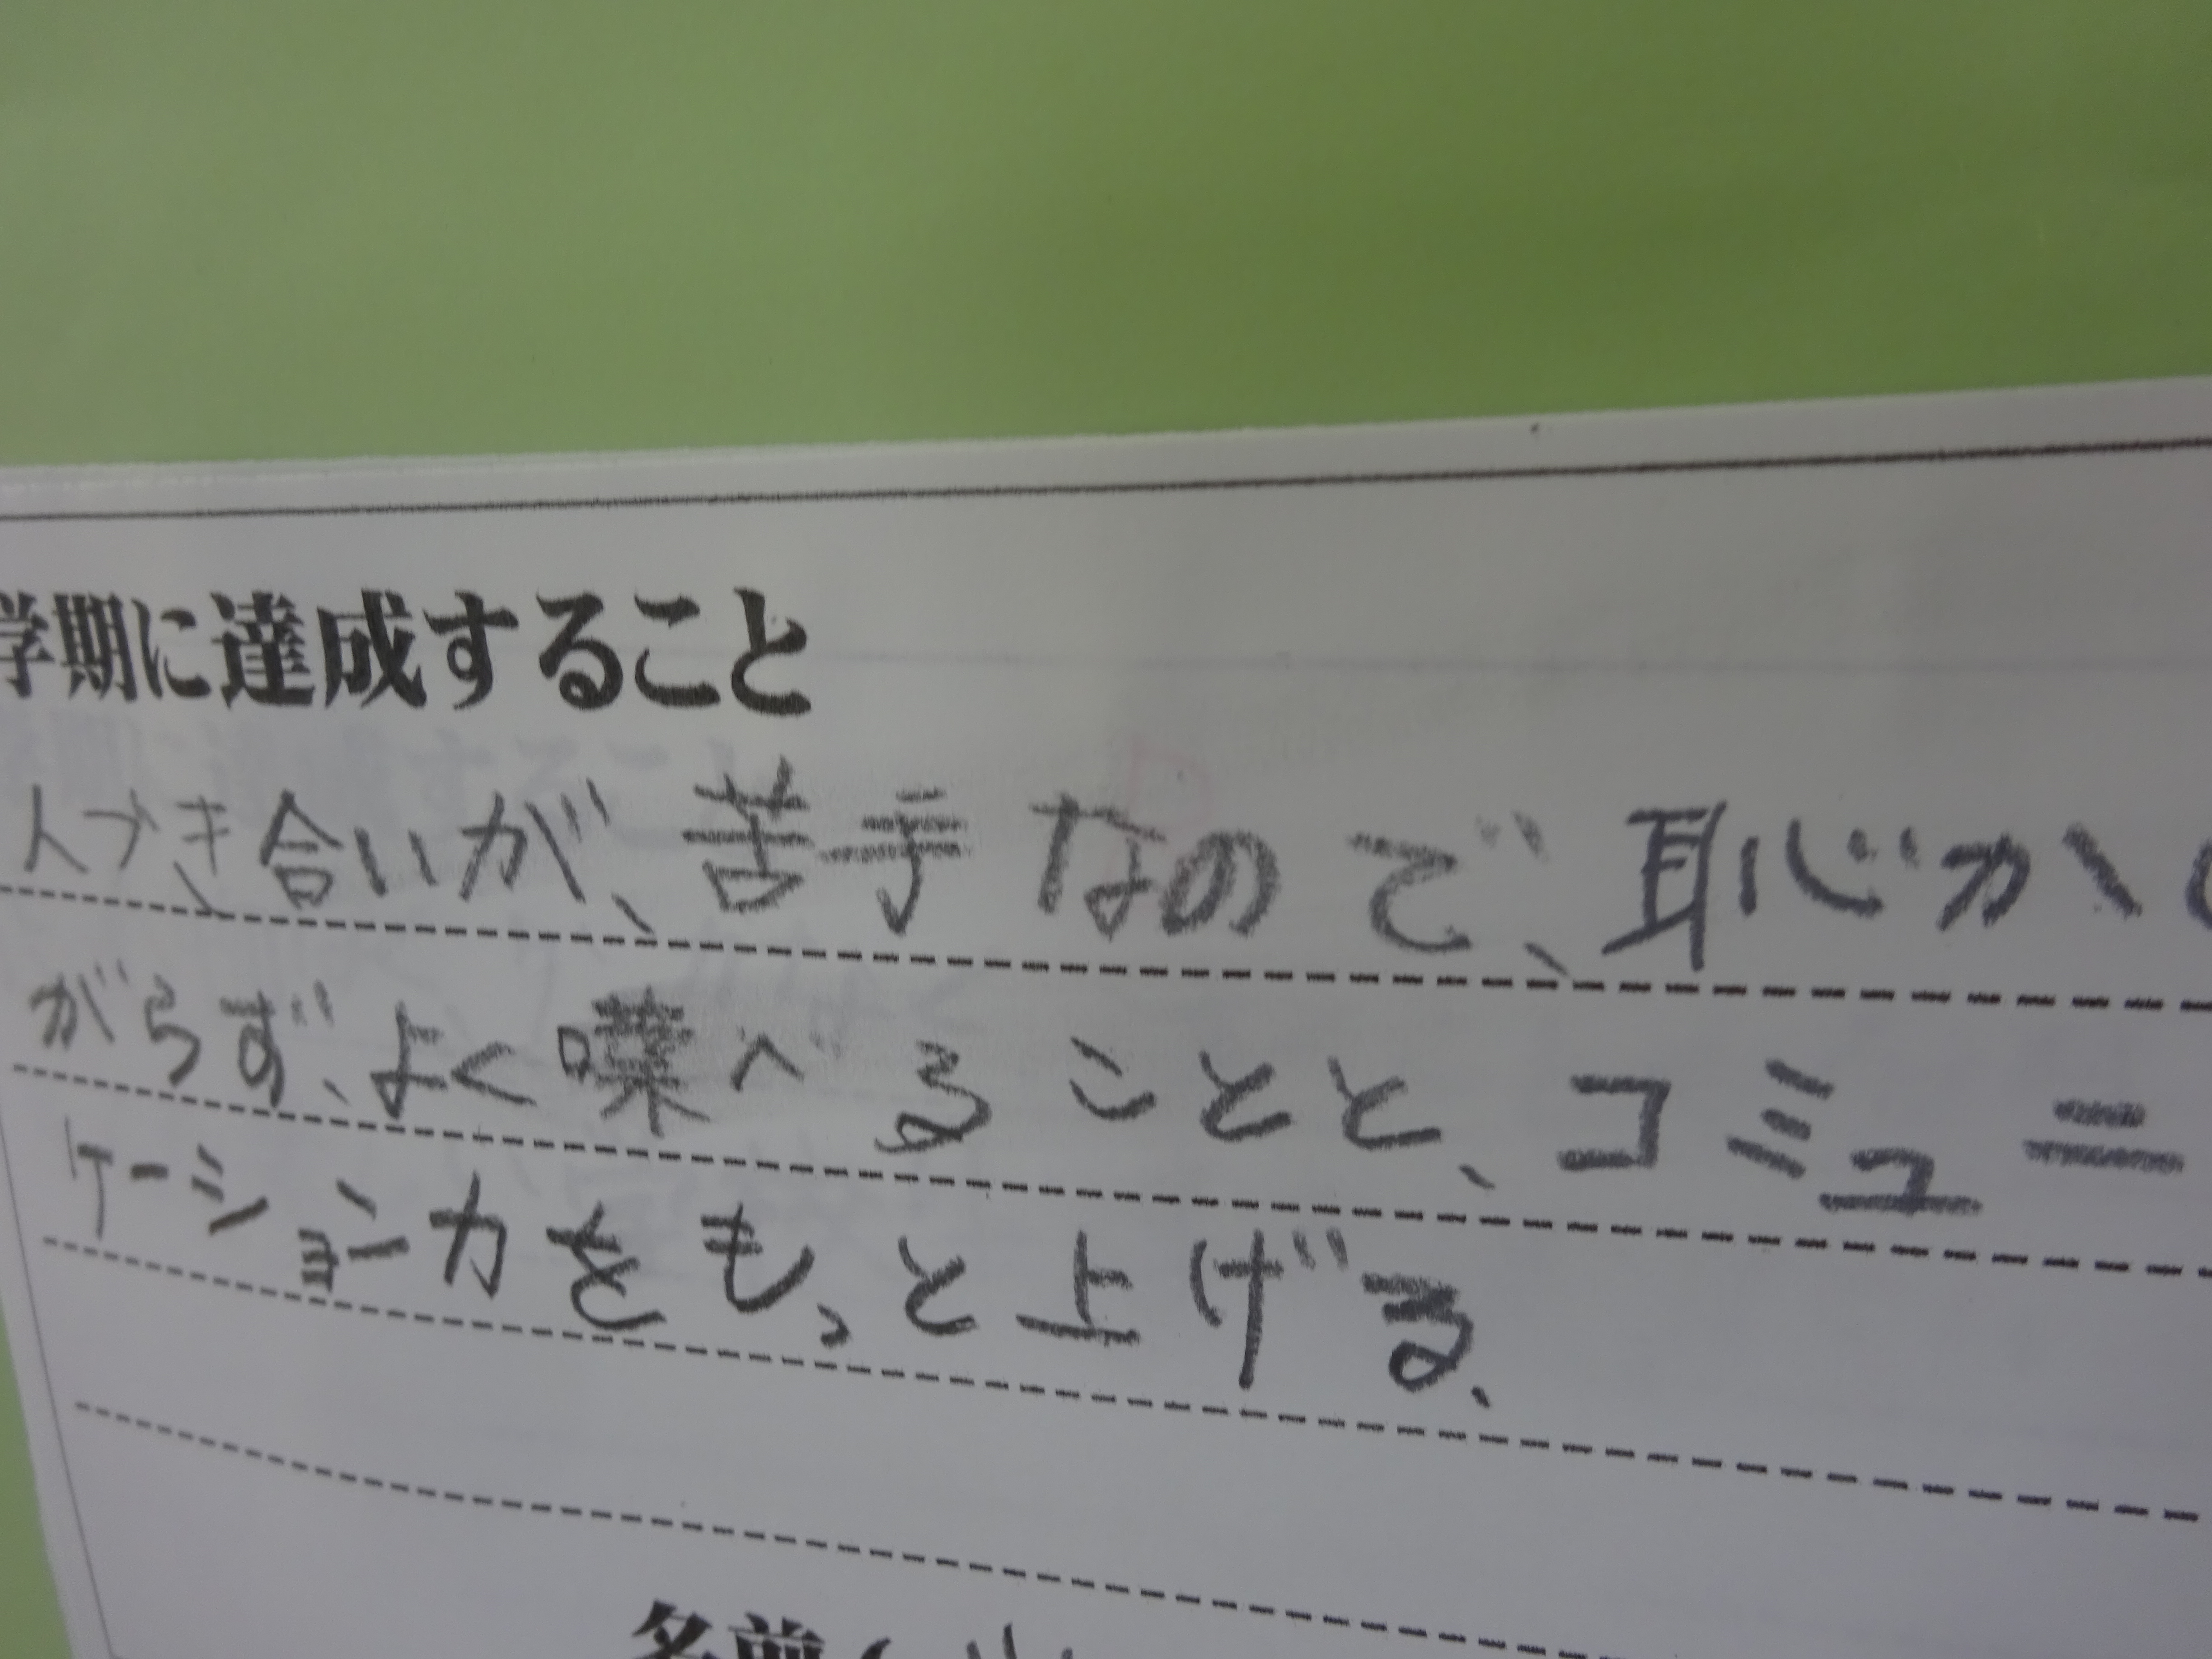 学期に達成すること
人づき合いが、苦手なので、恥ずかし
がらず、よく喋べることと、コミュニ
ケーション力をもっと上げる、
名前(